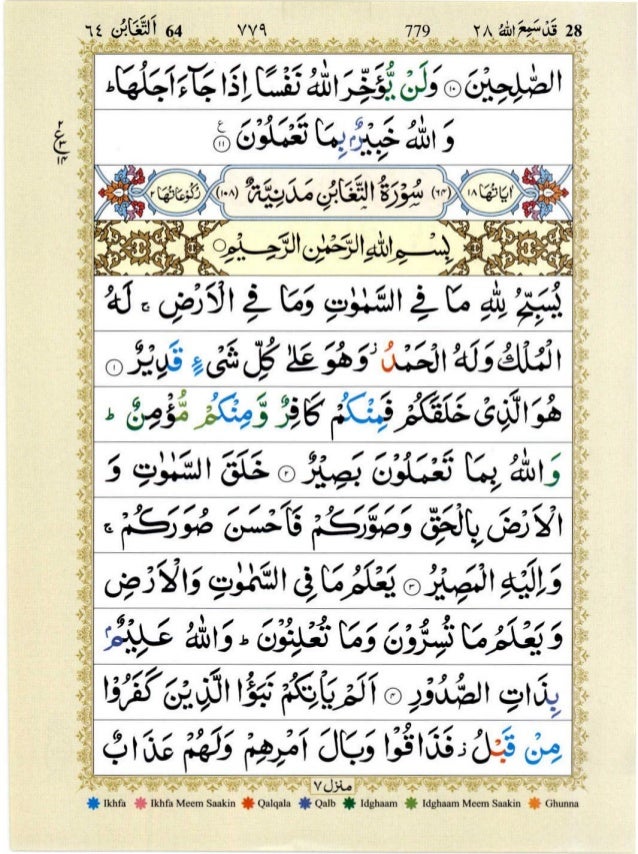 ٦٤ اَلتَّغَابُن 64 ٧٧٩ 779 ٢٨ قَدْ سَمِعَ اللّٰهُ 28
الصّٰلِحِيْنَ ۝١٠ وَلَنْ يُّؤَخِّرَ اللّٰهُ نَفْسًا اِذَا جَآءَ اَجَلُهَا ؕ
وَ اللّٰهُ خَبِيْرٌۢ بِمَا تَعْمَلُوْنَ ۝١١ ع
٢
ع٣
١٤
اٰيَاتُهَا ١٨ (٦٤) سُوْرَةُ التَّغَابُنِ مَدَنِيَّةٌ (١٠٨) رُكُوْعَاتُهَا ٢
بِسْمِ اللّٰهِ الرَّحْمٰنِ الرَّحِيْمِ
يُسَبِّحُ لِلّٰهِ مَا فِي السَّمٰوٰتِ وَمَا فِي الْاَرْضِ ۚ لَهُ
الْمُلْكُ وَلَهُ الْحَمْدُ ؗ وَهُوَ عَلٰى كُلِّ شَيْءٍ قَدِيْرٌ ۝١
هُوَ الَّذِيْ خَلَقَكُمْ فَمِنْكُمْ كَافِرٌ وَّمِنْكُمْ مُّؤْمِنٌ ؕ
وَاللّٰهُ بِمَا تَعْمَلُوْنَ بَصِيْرٌ ۝٢ خَلَقَ السَّمٰوٰتِ وَ
الْاَرْضَ بِالْحَقِّ وَصَوَّرَكُمْ فَاَحْسَنَ صُوَرَكُمْ ۚ
وَاِلَيْهِ الْمَصِيْرُ ۝٣ يَعْلَمُ مَا فِي السَّمٰوٰتِ وَالْاَرْضِ
وَيَعْلَمُ مَا تُسِرُّوْنَ وَمَا تُعْلِنُوْنَ ؕ وَاللّٰهُ عَلِيْمٌۢ
بِذَاتِ الصُّدُوْرِ ۝٤ اَلَمْ يَاْتِكُمْ نَبَؤُا الَّذِيْنَ كَفَرُوْا
مِنْ قَبْلُ ؗ فَذَاقُوْا وَبَالَ اَمْرِهِمْ وَلَهُمْ عَذَابٌ
منزل ٧
Ikhfa Ikhfa Meem Saakin Qalqala Qalb Idghaam Idghaam Meem Saakin Ghunna